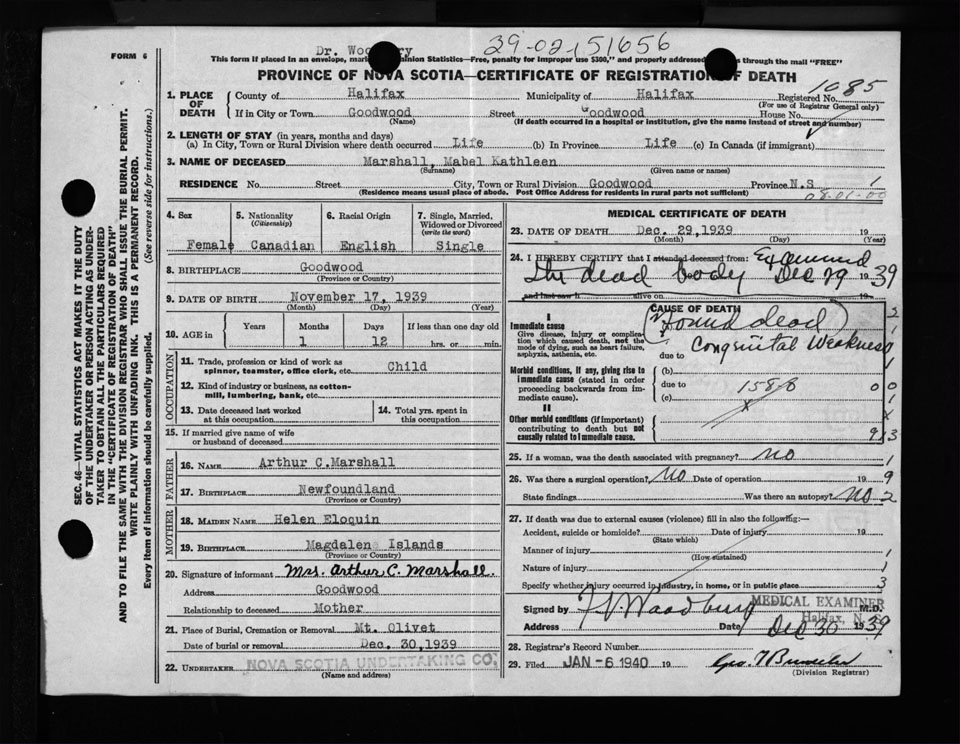 FORM 6
Dr. Woodbury
39-02-151656
This form if placed in an envelope, marked Dominion Statistics—Free, penalty for improper use $300," and properly addressed passes through the mail "FREE"
PROVINCE OF NOVA SCOTIA—CERTIFICATE OF REGISTRATION OF DEATH
1085
1. PLACE OF DEATH
County of Halifax Municipality of Halifax Registered No.
(For use of Registrar General only)
If in City or Town Goodwood Street Goodwood House No.
(Name) (If death occurred in a hospital or institution, give the name instead of street and number)
2. LENGTH OF STAY (in years, months and days)
(a) In City, Town or Rural Division where death occurred Life (b) In Province Life (c) In Canada (if immigrant)
3. NAME OF DECEASED Marshall, Mabel Kathleen
(Surname) (Given name or names)
RESIDENCE No. Street City, Town or Rural Division Goodwood Province N.S. 1
(Residence means usual place of abode. Post Office Address for residents in rural parts not sufficient)
SEC. 46—VITAL STATISTICS ACT MAKES IT THE DUTY
OF THE UNDERTAKER OR PERSON ACTING AS UNDER-
TAKER TO OBTAIN ALL THE PARTICULARS REQUIRED
IN THE "CERTIFICATE OF REGISTRATION OF DEATH"
AND TO FILE THE SAME WITH THE DIVISION REGISTRAR WHO SHALL ISSUE THE BURIAL PERMIT.
WRITE PLAINLY WITH UNFADING INK. THIS IS A PERMANENT RECORD.
Every item of information should be carefully supplied. (See reverse side for instructions.)
4. Sex
Female
5. Nationality
(Citizenship)
Canadian
6. Racial Origin
English
7. Single, Married,
Widowed or Divorced
(write the word)
Single
8. BIRTHPLACE Goodwood
(Province or Country)
9. DATE OF BIRTH November 17, 1939
(Month) (Day) (Year)
10. AGE in
Years Months Days If less than one day old
1 12 hrs. or min.
OCCUPATION
11. Trade, profession or kind of work as
spinner, teamster, office clerk, etc. Child
12. Kind of industry or business, as cotton-
mill, lumbering, bank, etc.
13. Date deceased last worked
at this occupation
14. Total yrs. spent in
this occupation
15. If married give name of wife
or husband of deceased
FATHER
16. NAME Arthur C.Marshall
17. BIRTHPLACE Newfoundland
(Province or Country)
MOTHER
18. MAIDEN NAME Helen Eloquin
19. BIRTHPLACE Magdalen Islands
(Province or Country)
20. Signature of informant Mrs. Arthur C. Marshall.
Address Goodwood
Relationship to deceased Mother
21. Place of Burial, Cremation or Removal Mt. Olivet
Date of burial or removal Dec. 30,1939
22. UNDERTAKER NOVA SCOTIA UNDERTAKING CO.
(Name and address)
MEDICAL CERTIFICATE OF DEATH
23. DATE OF DEATH Dec. 29,1939 19
(Month) (Day) (Year)
24. I HEREBY CERTIFY that I attended deceased from: Examined
the dead body Dec 29 1939
and last saw h alive on 19
CAUSE OF DEATH
I
Immediate cause
Give disease, injury or complica-
tion which caused death, not the
mode of dying, such as heart failure,
asphyxia, asthenia, etc.
(Found dead)
due to Congenital Weakness
Morbid conditions, if any, giving rise to
immediate cause (stated in order
proceeding backwards from im-
mediate cause).
(b)
due to
(c)
158
II
Other morbid conditions (if important)
contributing to death but not
causally related to immediate cause.
25. If a woman, was the death associated with pregnancy? no
26. Was there a surgical operation? No Date of operation 19
State findings Was there an autopsy? No
27. If death was due to external causes (violence) fill in also the following:
Accident, suicide or homicide? Date of injury 19
(State which)
Manner of injury
(How sustained)
Nature of injury
Specify whether injury occurred in industry, in home, or in public place
Signed by F V Woodbury M.D.
MEDICAL EXAMINER
Halifax, N. S.
Address Date Dec 30 1939
28. Registrar's Record Number
29. Filed JAN -6 1940 19
(Division Registrar)